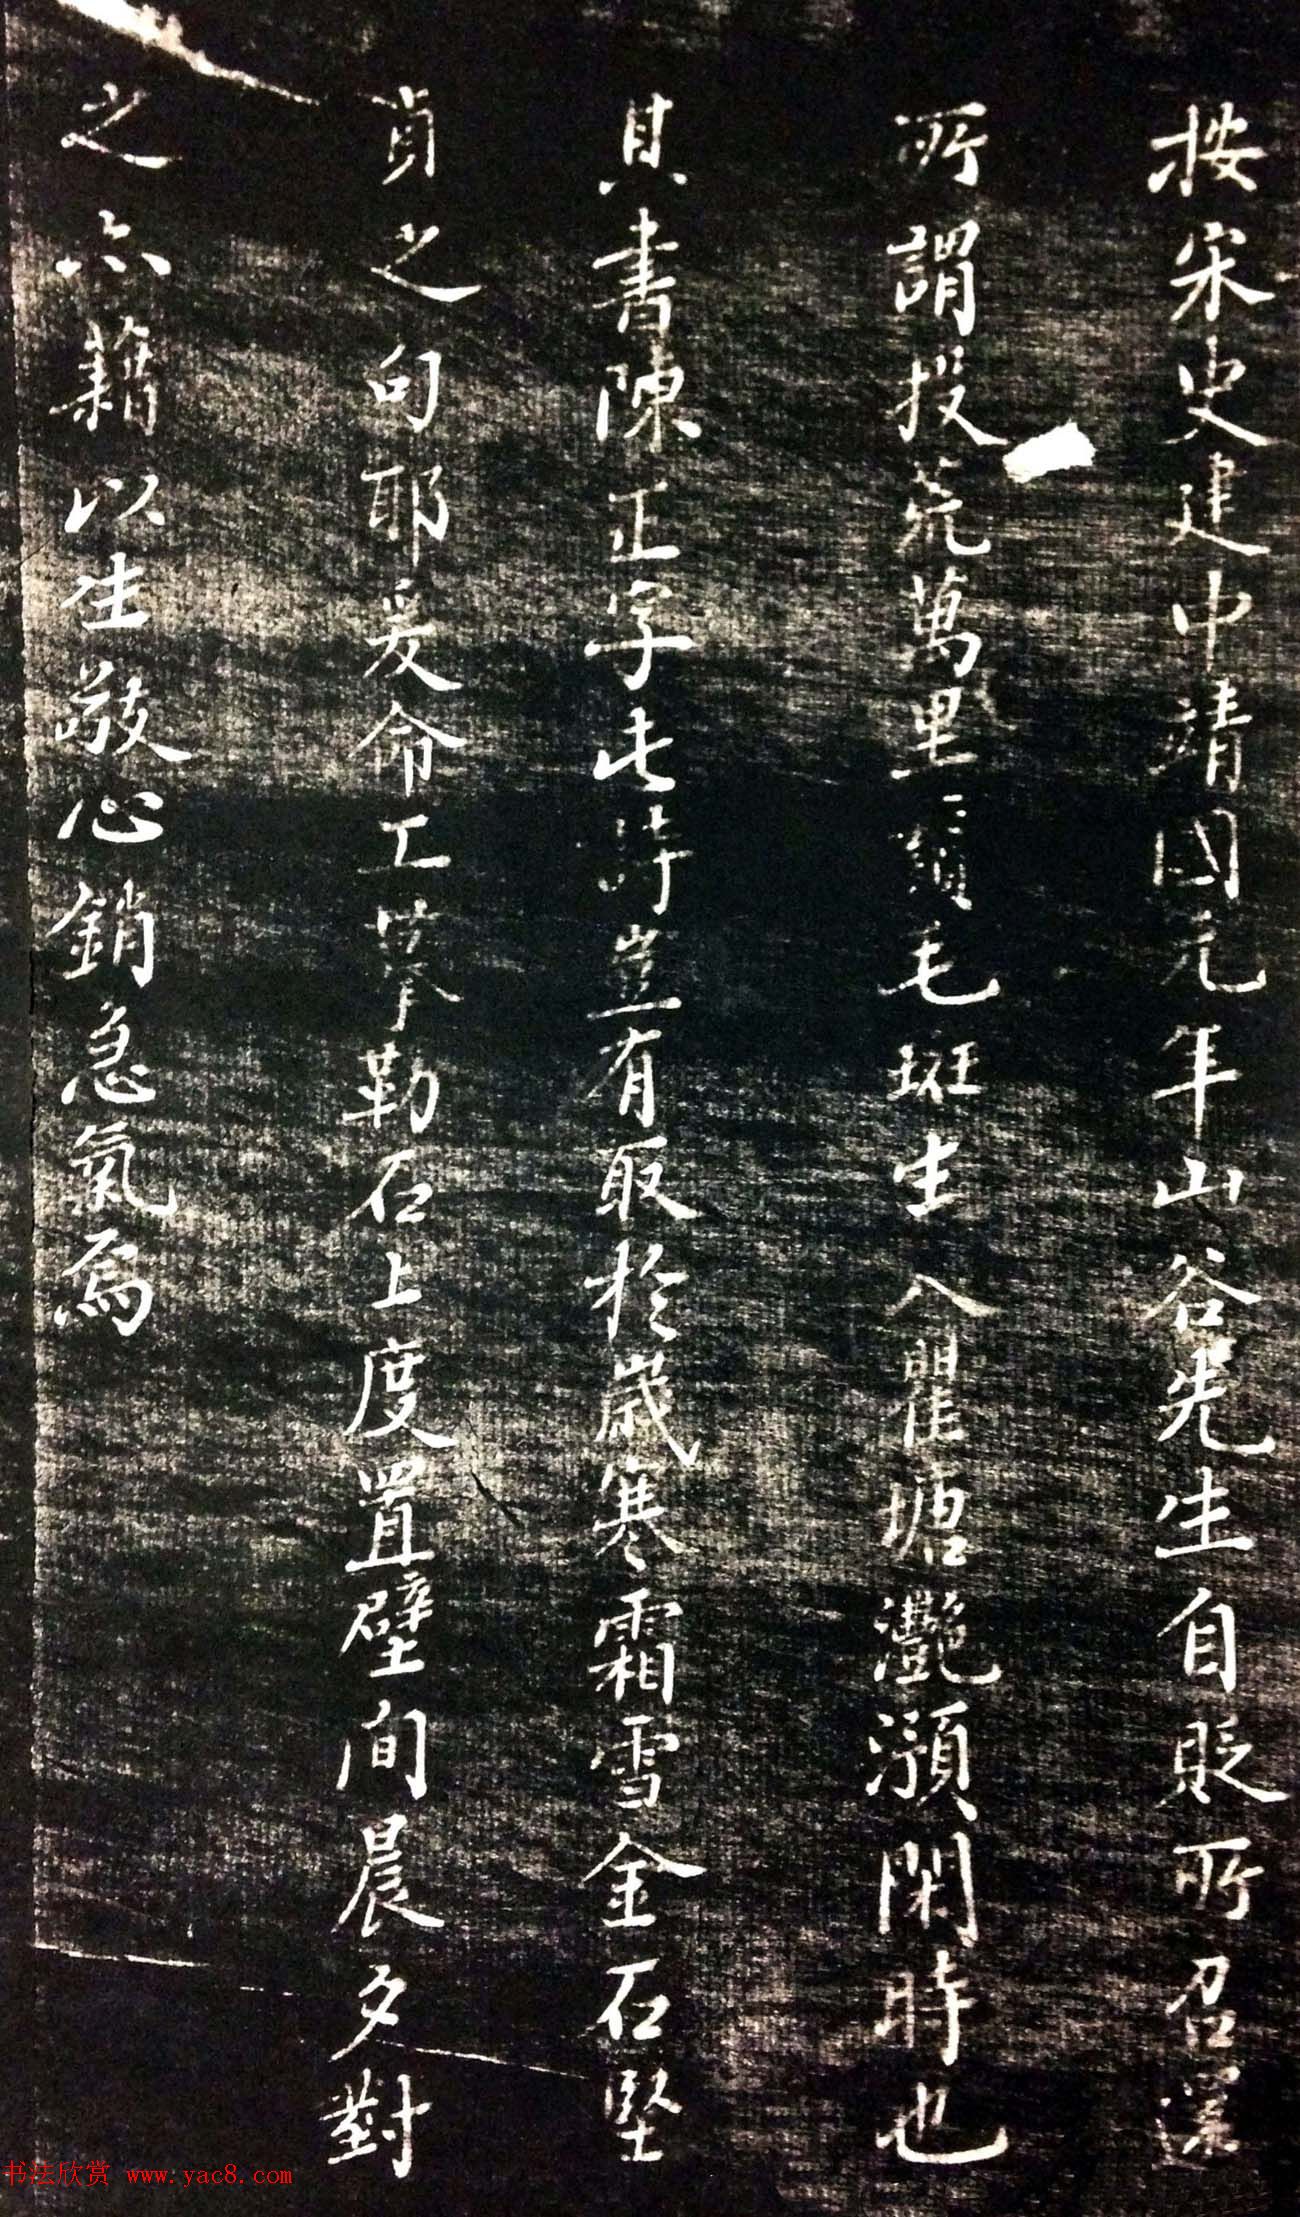 按宋史建中靖國元年山谷先生自貶所召還
所謂投荒萬里鬢毛斑生入瞿塘灔澦関時也
其書陳正字此詩豈有取於歲寒霜雪金石堅
貞之句耶爰命工摹勒石上度置壁间晨夕對
之亦藉以生敬心銷急氣焉
书法欣赏 www.yac8.com